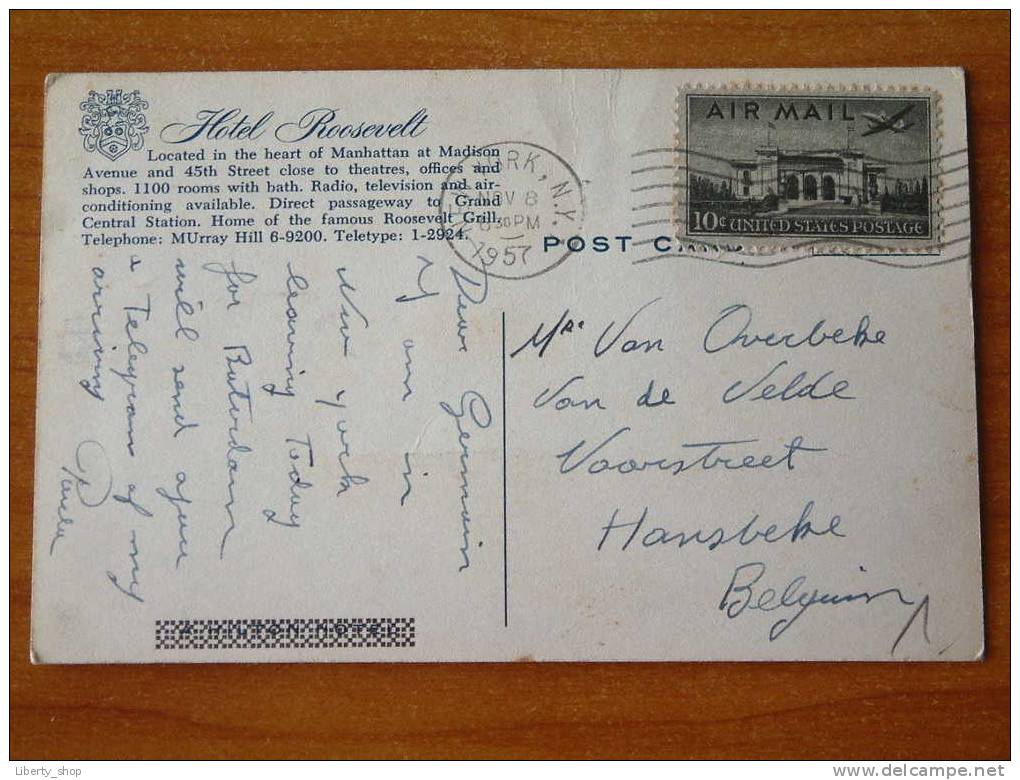 Hotel Roosevelt
Located in the heart of Manhattan at Madison
Avenue and 45th Street close to theatres, offices and
shops. 1100 rooms with bath. Radio, television and air-
conditioning available. Direct passageway to Grand
Central Station. Home of the famous Roosevelt Grill.
Telephone: MUrray Hill 6-9200. Teletype: 1-2924.
YORK, N.Y.
NOV 8
30 PM
1957
AIR MAIL
10¢ UNITED STATES POSTAGE
POST CARD
Dear Germain
I am in
New york
leaving Today
for Ruterdam
will send you
a Telegram of my
arriving
Mr. Van Overbeke
Van de Velde
Voorstreet
Hansbeke
Belgium
A HILTON HOTEL
Liberty_shop
delcampe.net